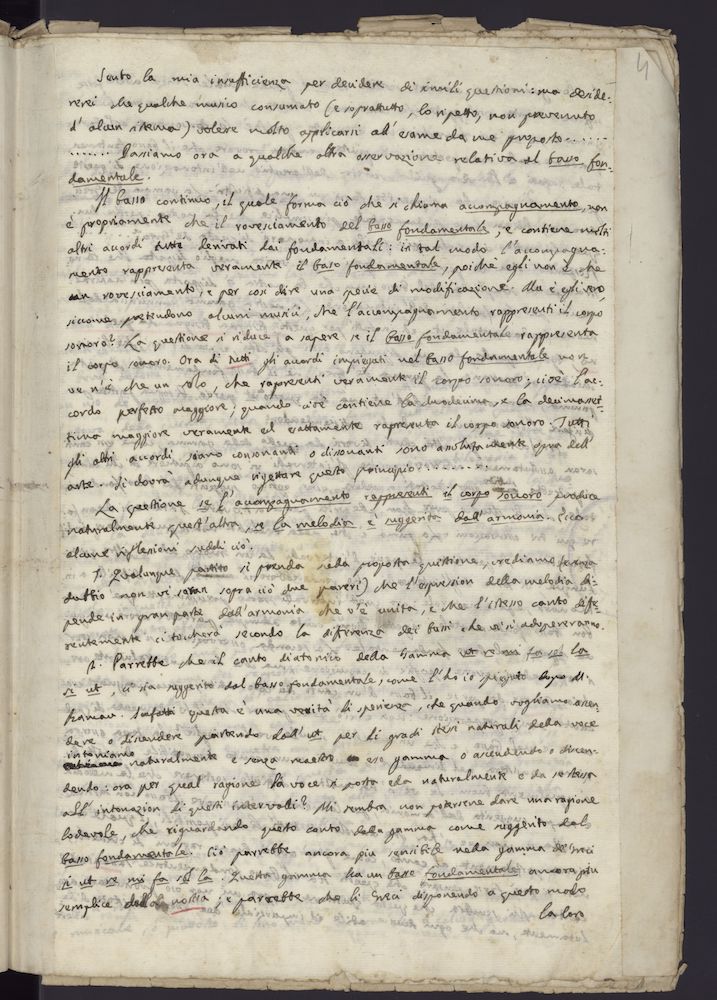 4
Sento la mia insufficienza per decidere di simili questioni: ma deside-
rerei che qualche musico consumato (e soprattutto, lo ripetto, non prevenuto
d'alcun sistema) volesse molto applicarsi all'esame da me proposto......
....... Passiamo ora a qualche altra osservazione relativa al basso fon-
damentale.
Il basso continuo, il quale forma ciò che si chiama accompagnamento, non
è propriamente che il rovesciamento del basso fondamentale, e contiene molti
altri acordi tutti derivati dai fondamentali: in tal modo l'accompagna-
mento rappresenta veramente il basso fondamentale, poichè egli non è che
un rovesciamento, e per così dire una specie di modificazione. Ma è egli vero,
siccome pretendono alcuni musici, che l'accompagnamento rappresenti il corpo
sonoro? La questione si riduce a sapere se il basso fondamentale rappresenta
il corpo sonoro. Ora di tutti gli accordi impiegati nel basso fondamentale non
ve n'è che un solo, che rapresenti veramente il corpo sonoro; cioè l'ac-
cordo perfetto maggiore; quando cioè contiene la duodecima, e la decimaset-
tima maggiore veramente ed esattamente rapresenta il corpo sonoro. Tutti
gli altri accordi siano consonanti o dissonanti sono assolutamente opra dell'
arte. Si dovrà adunque rigettare questo principio..........
La questione se l'accompagnamento rappresenti il corpo sonoro produce
naturalmente quest'altra, se la melodia è suggerita dall'armonia. Ecco
alcune riflessioni suddi ciò.
1. Qualunque partito si prenda su la proposta quistione, crediamo (e senza
dubbio non vi saran sopra ciò due pareri) che l'espression della melodia di-
pende in gran parte dall'armonia che v'è unita, e che l'istesso canto diffe-
rentemente ci toccherà secondo la differenza dei bassi che vi si adopereranno.
2. Parrebbe che il canto diatonico della Gamma ut re mi fa sol la
si ut, ci sia suggerito dal basso fondamentale, come l'ho io spiegato dopo M.
Rameau. Infatti questa è una verità di sperienza, che quando vogliamo ascen
dere o discendere partendo dall'ut per li gradi stessi naturali della voce
intoniamo naturalmente e senza maestro eso gamma o ascendendo o discen-
dendo: ora per qual ragione la voce si porta ella naturalmente e da se stessa
all'intonazion di questi intervalli? Mi sembra non potersene dare una ragione
lodevole, che riguardando questo canto della gamma come suggerito dal
basso fondamentale. Ciò parrebbe ancora più sensibile nella gamma de' Greci
si ut re mi fa sol la. Questa gamma ha un basso fondamentale ancora più
semplice della nostra; e parrebbe che li Greci disponendo a questo modo
la loro